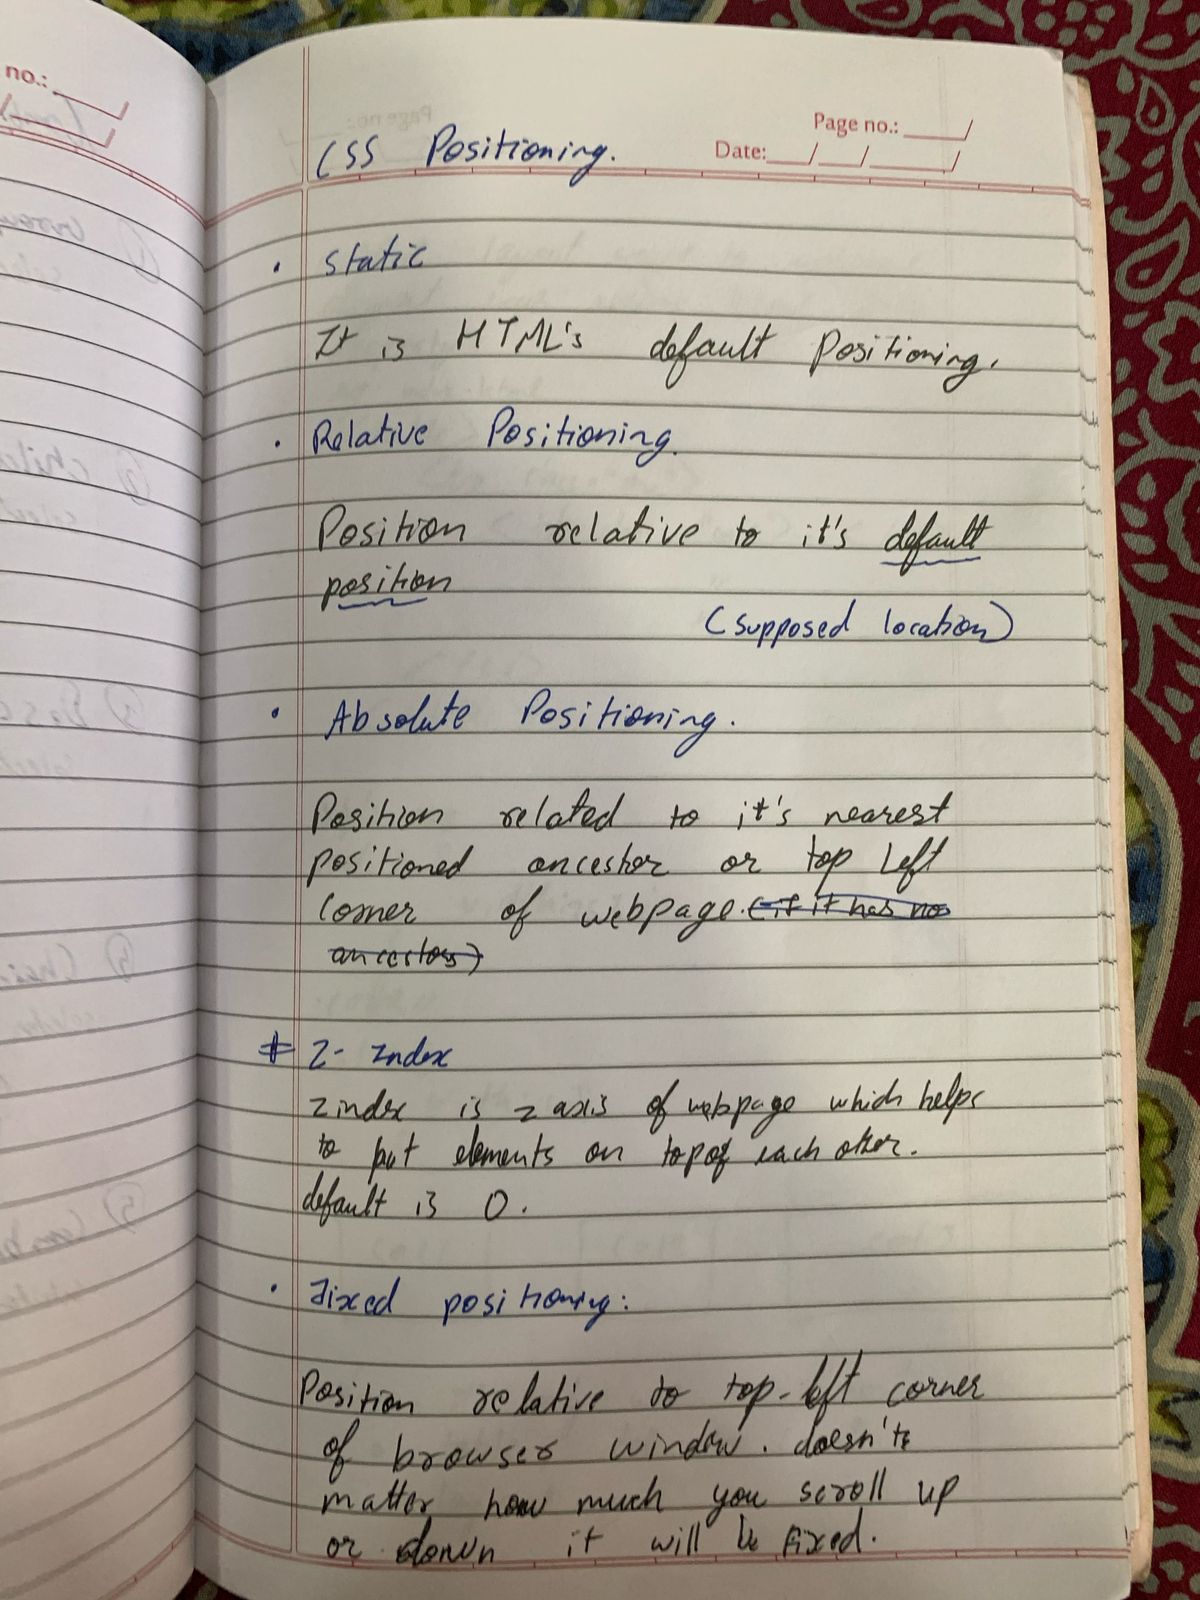 no.:
Page no.:
Date:
CSS Positioning.
• Static
It is HTML's default Positioning.
• Relative Positioning.
Position relative to it's default
position
(supposed location)
• Absolute Positioning.
Position related to it's nearest
positioned ancestor or top left
corner of webpage. (if it has no
ancestors)
# Z- Index
Z index is z axis of webpage which helps
to put elements on top of each other.
default is 0.
• Fixed positioning:
Position relative to top-left corner
of browser window. doesn't
matter how much you scroll up
or down it will be fixed.